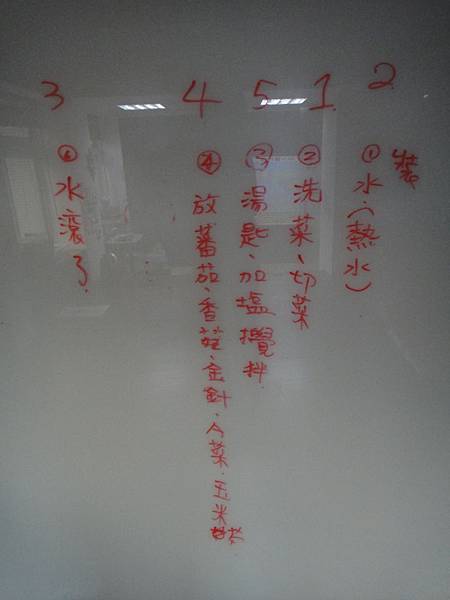 3 4 5 1 2
裝
①水、(熱水)
②洗菜、切菜
③湯匙、加塩攪拌
④放蕃茄、香菇、金針、A菜、玉米
水滾了